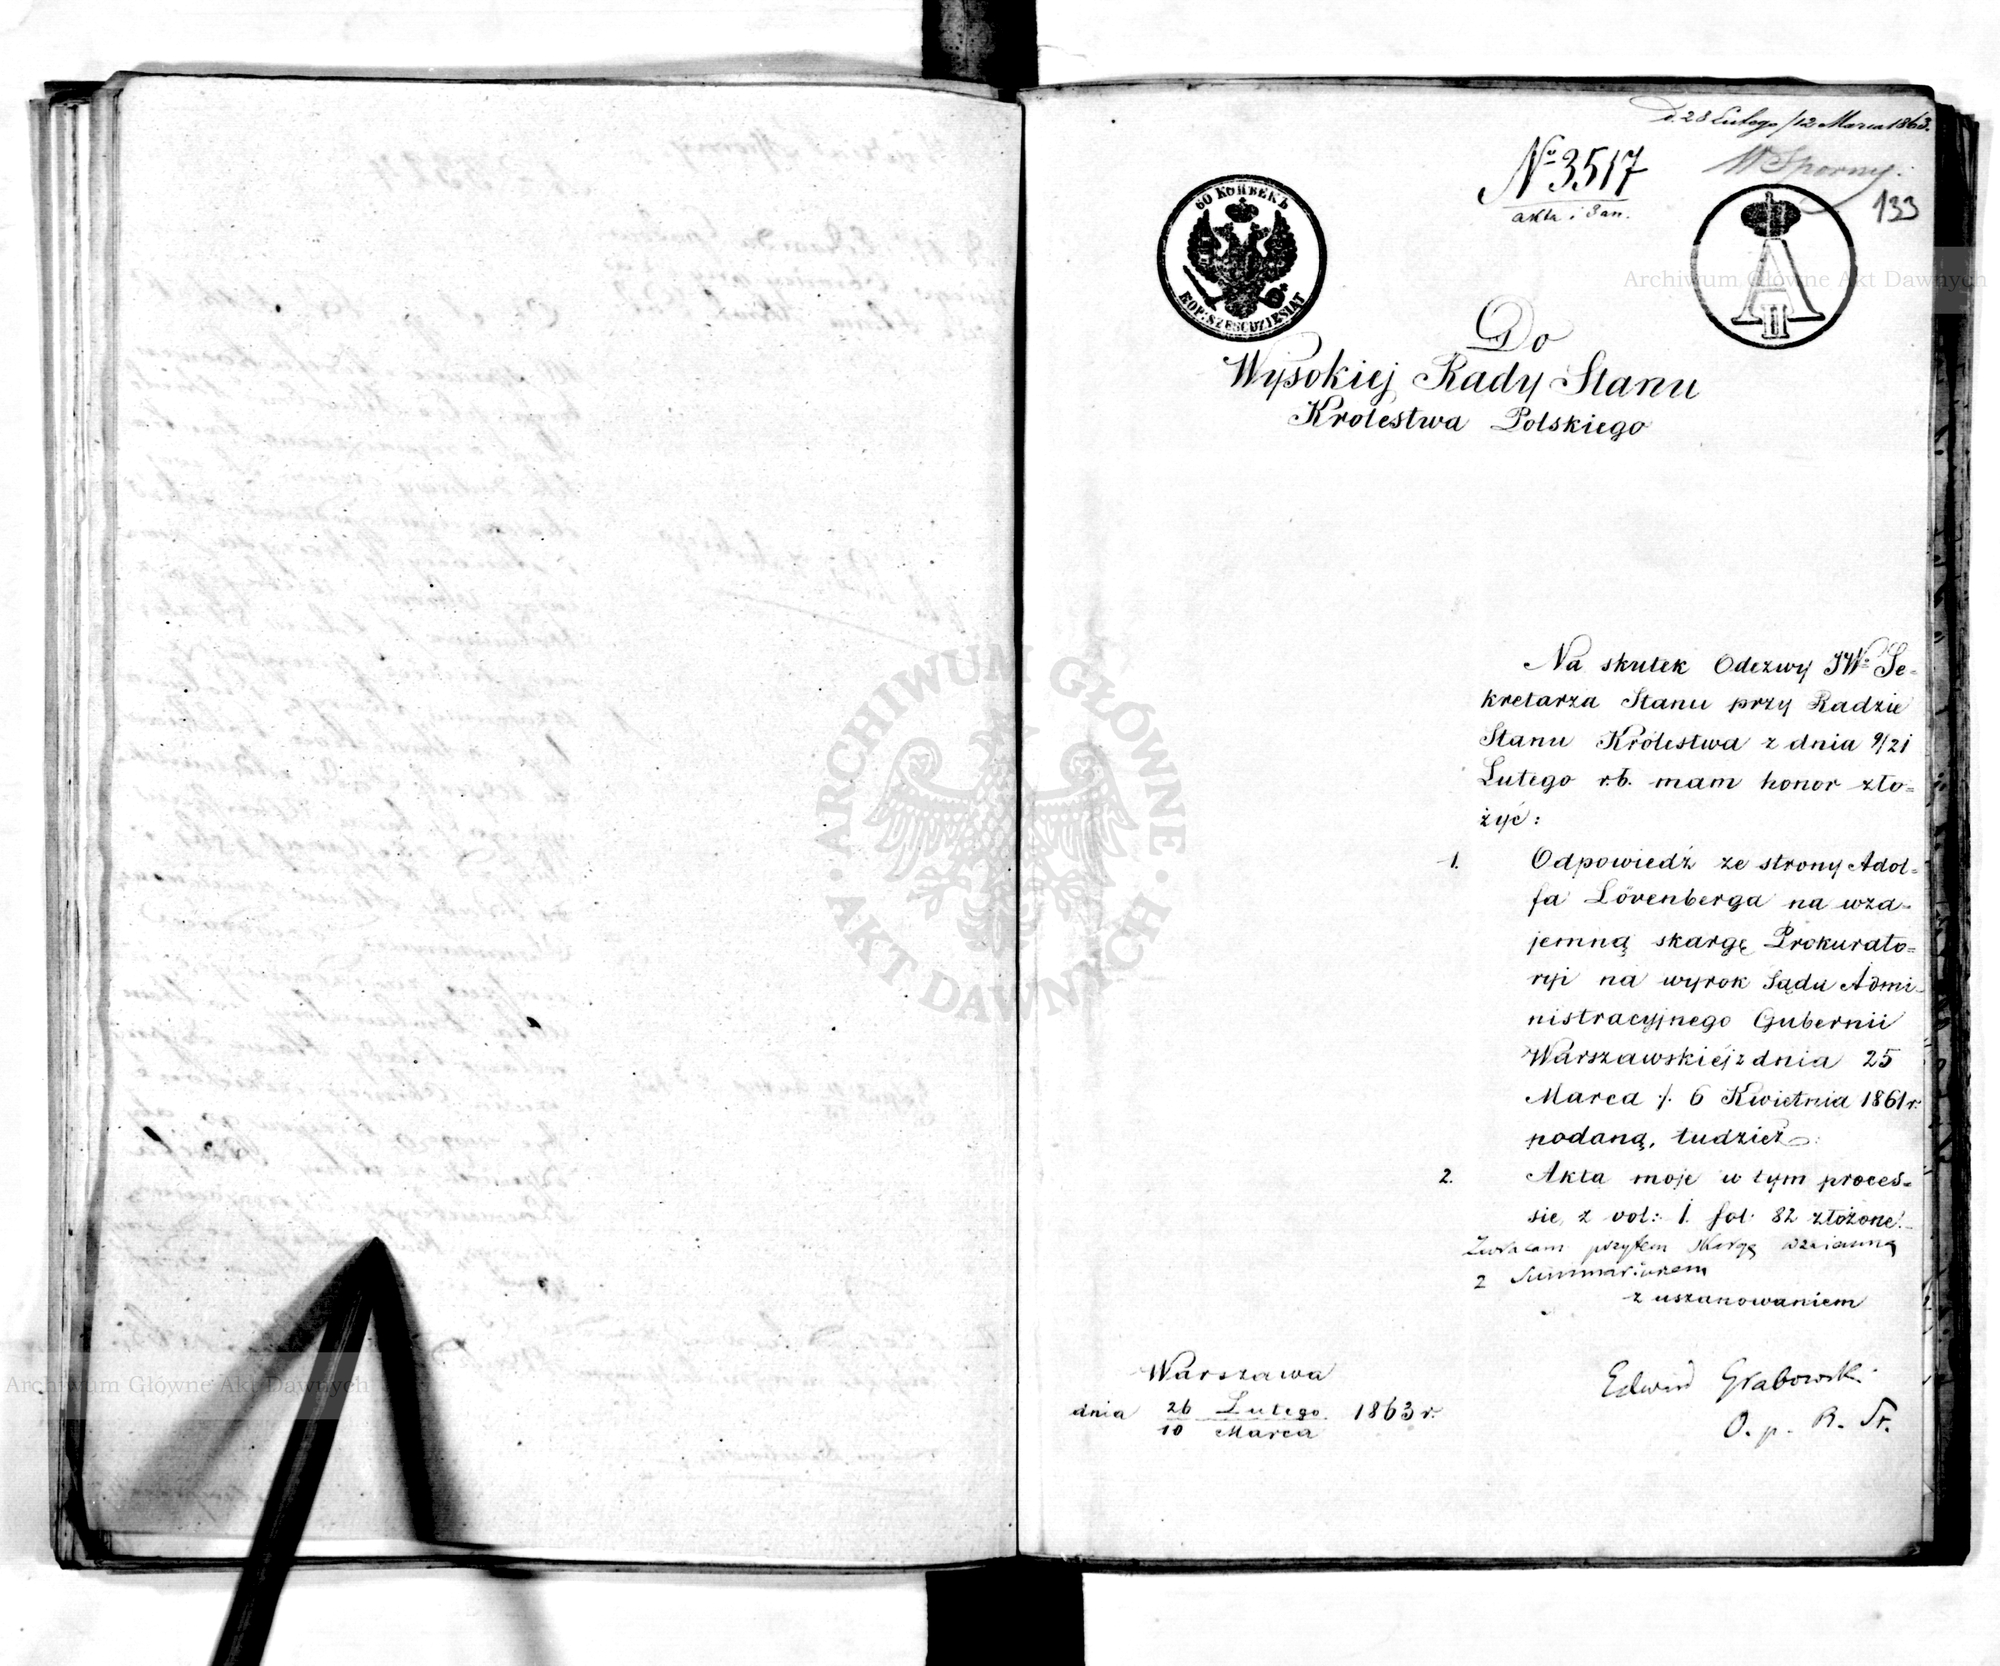 D. 28 Lutego /12 Marca 1863.
№ 3517
akta i
W Sporny.
133
60 КОПѢЕКЪ
KOP: SZEŚĆDZIESIĄT
A II
Do
Wysokiej Rady Stanu
Królestwa Polskiego
Na skutek Odezwy JWº Se-
kretarza Stanu przy Radzie
Stanu Królestwa z dnia 9/21
Lutego r.b. mam honor zło-
żyć:
1. Odpowiedź ze strony Adol-
fa Lövenberga na wza-
jemną skargę Prokurato-
ryi na wyrok Sądu Admi-
nistracyjnego Gubernii
Warszawskiej z dnia 25
Marca /. 6 Kwietnia 1861 r.
podaną, tudzież
2. Akta moje w tym proces-
sie, z vol: 1. fol. 82 złożone.
Zwracam przytem skargę wzajemną
z Summariuszem
z uszanowaniem
Warszawa
dnia 26 Lutego 1863 r.
10 Marca
Edwin Grabowski
O. p. R. St.
ARCHIWUM GŁÓWNE
AKT DAWNYCH
Archiwum Główne Akt Dawnych
Archiwum Główne Akt Dawnych